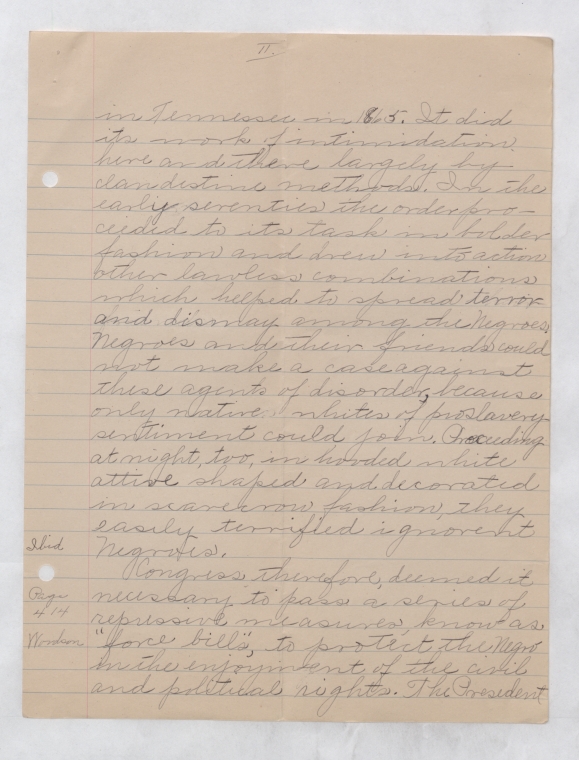 II.
in Tennessee in 1865. It did
its work of intimidation
here and there largely by
clandestine methods. In the
early seventies the order pro-
ceeded to its task in bolder
fashion and drew into action
other lawless combinations
which helped to spread terror
and dismay among the Negroes.
Negroes and their friends could
not make a case against
these agents of disorder, because
only native whites of proslavery
sentiment could join. Proceeding
at night, too, in hooded white
attive shaped and decorated
in scarecrow fashion, they
easily terrified ignorent
Ibid
Negroes.
Congress, therefore, deemed it
Page
necessary to pass a series of
414
repressive measures, know as
Wordson
"force bills", to protect the Negro
in the enjoyment of the civil
and political rights. The President